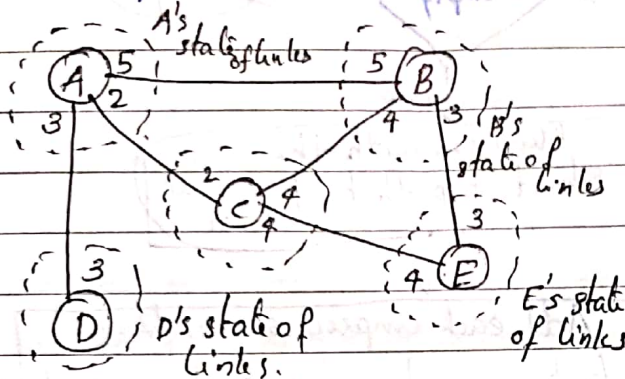 A's
state of links
A 5 5 B
2
3 4 3 B's
state of
links
2
C 4
4
3
3
4 E
D D's state of
links.
E's state
of links